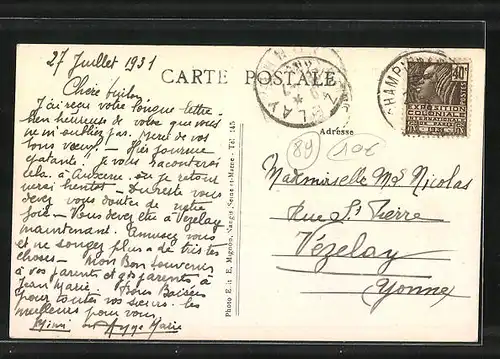 27 Juillet 1931
CARTE POSTALE
Chère
J'ai reçu votre longue lettre
bien heureuse de votre que vous
ne m'oubliez pas. Merci de vos
bons vœux. Hier journée
épatante" Je vous raconterai
cela. à Auxerre où je retour
nerai bientôt - Du reste vous
devez vous douter de notre
joie - Vous devez être à Vézelay
maintenant. Amusez vous
et ne songez plus à de tristes
choses - Mon Bon Souvenir
à vos parents et gds parents, à
Jean Marie. Bons Baisers
pour toutes vos les
meilleurs pour vous
Mimi Marie
Photo E. it E. Mignon, Nangis Seine-et-Marne - Tél. 145
Adresse
89
10€
Mademoiselle Md Nicolas
Rue St Pierre
Vézelay
Yonne
40c
EXPOSITION
COLONIALE
INTERNATIONALE